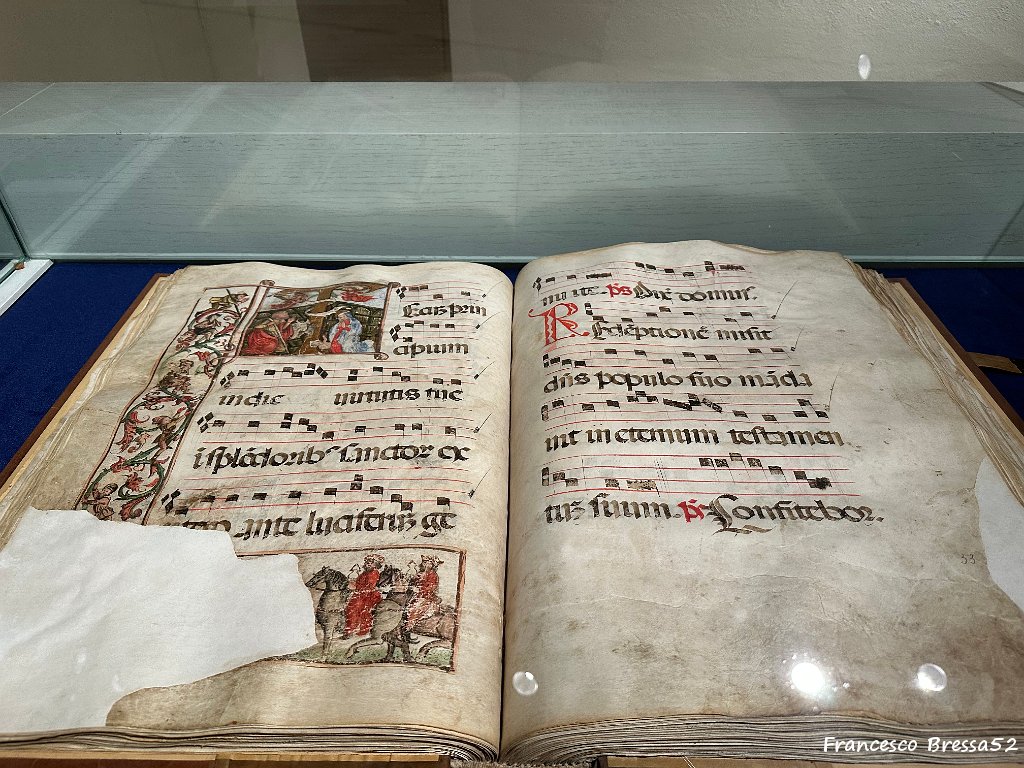 Ecuz prin
cipium
in die virtutis tue
i splēdorib⁹ sanctor ex
utero ante luciferuz ge
nui te. p̄s Dix̄ domus.
Redēptionē misit
dn̄s populo suo mādā
vit in eternum testamen
tuz suum. p̄s Confitebor.
53
Francesco Bressa52